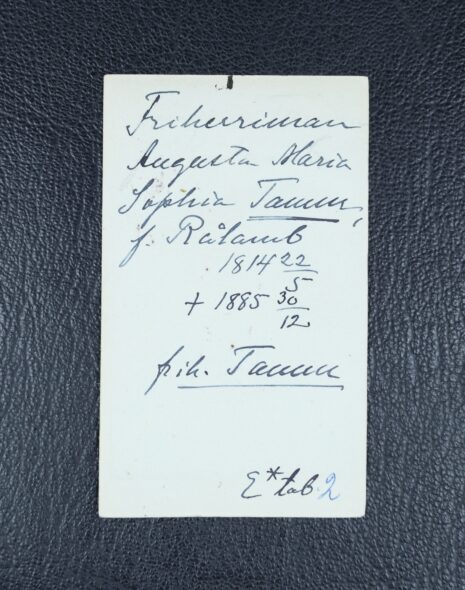 Friherrinnan
Augusta Maria
Sophia Tamm,
f. Rålamb
1814 22/5
+ 1885 30/12
frih. Tamm
E* tab. 2